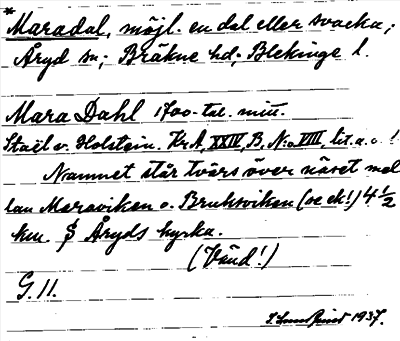 * Maradal, möjl. en dal eller svacka;
Åryd sn; Bräkne hd; Blekinge l.
Mara Dahl 1700-tal. min.
Staël v. Holstein. KrA, XXIV, B. N:o VIII, lit. a. c!
Namnet står tvärs över näset mel
lan Maraviken o. Bruksviken (se ek!) 4½
km. S Åryds kyrka.
(Vänd!)
G. 11.
1937.